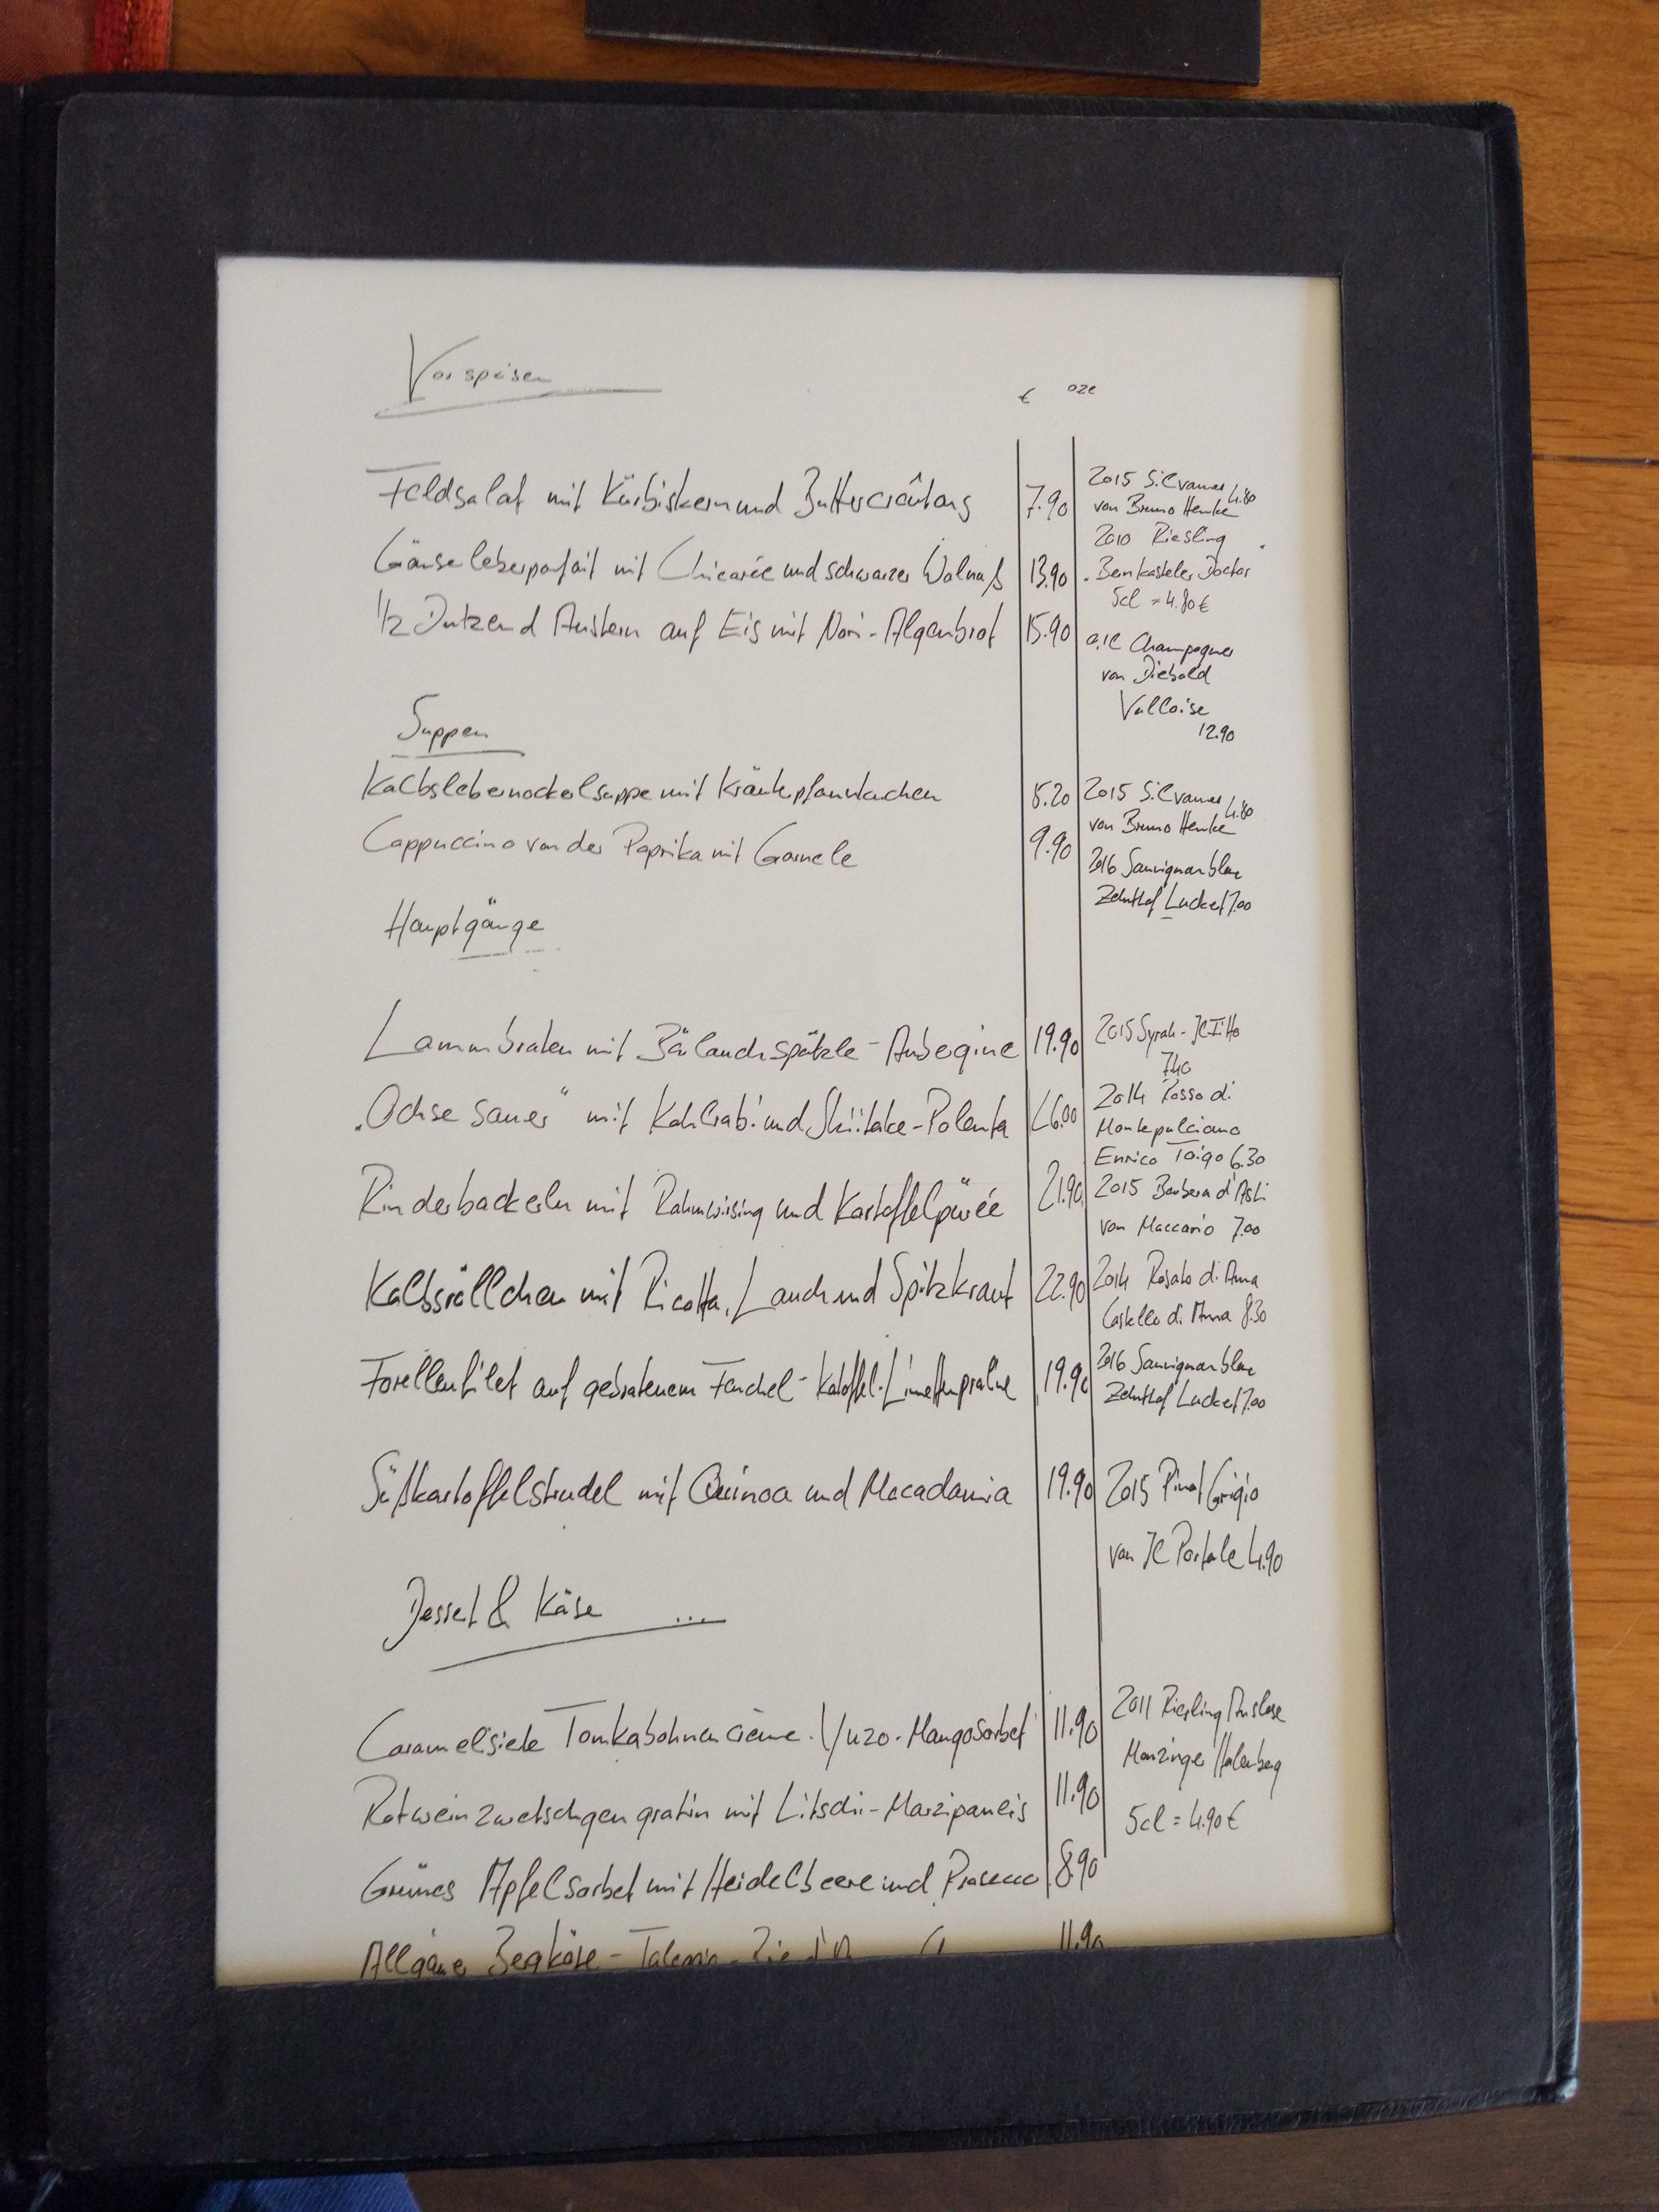 Vorspeisen
€ 0.2l
Feldsalat mit Kürbiskern und Buttercroûtons 7.90
2015 Silvaner 4.80
von Bruno Henke
Gänseleberparfait mit Chicorée und schwarzer Walnuß 13.90
2010 Riesling
Bernkasteler Doctor
5cl = 4.80€
1/2 Dutzend Austern auf Eis mit Nori-Algenbrot 15.90
0.1l Champagner
von Diebold
Valloise
12.90
Suppen
Kalbslebernockerlsuppe mit Kräuterpfannkuchen 5.20
2015 Silvaner 4.80
von Bruno Henke
Cappuccino von der Paprika mit Garnele 9.90
2016 Sauvignon blanc
Zehnthof Luckert 7.00
Hauptgänge
Lammbraten mit Bärlauchspätzle-Aubergine 19.90
2015 Syrah
7.40
"Ochse sauer" mit Kohlrabi und Shiitake-Polenta 26.00
2014 Rosso di
Montepulciano
Enrico 6.30
Rinderbackerln mit Rahmwirsing und Kartoffelpürée 21.90
2015 Barbera d'Asti
von Maccario 7.00
Kalbsröllchen mit Ricotta, Lauch und Spitzkraut 22.90
2014 Rosato di Ama
Castello di Ama 8.30
Forellenfilet auf gebratenem Fenchel-Kartoffel-Limettenpraline 19.90
2016 Sauvignon blanc
Zehnthof Luckert 7.00
Süßkartoffelstrudel mit Quinoa und Macadamia 19.90
2015 Pinot Grigio
von Il Portale 4.90
Dessert & Käse ...
Caramelisierte Tonkabohnencrème. Yuzo-Mangosorbet 11.90
2011 Riesling Auslese
Monzinger Halenberg
5cl = 4.90€
Rotweinzwetschgengratin mit Litschi-Marzipaneis 11.90
Grünes Apfelsorbet mit Heidelbeere und Prosecco 8.90
Allgäuer Bergkäse - 11.90